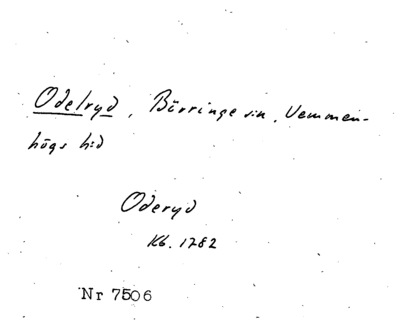 Odelryd, Börringe sn, Vemmen-
högs hd
Oderyd
Kb. 1782
Nr 7506